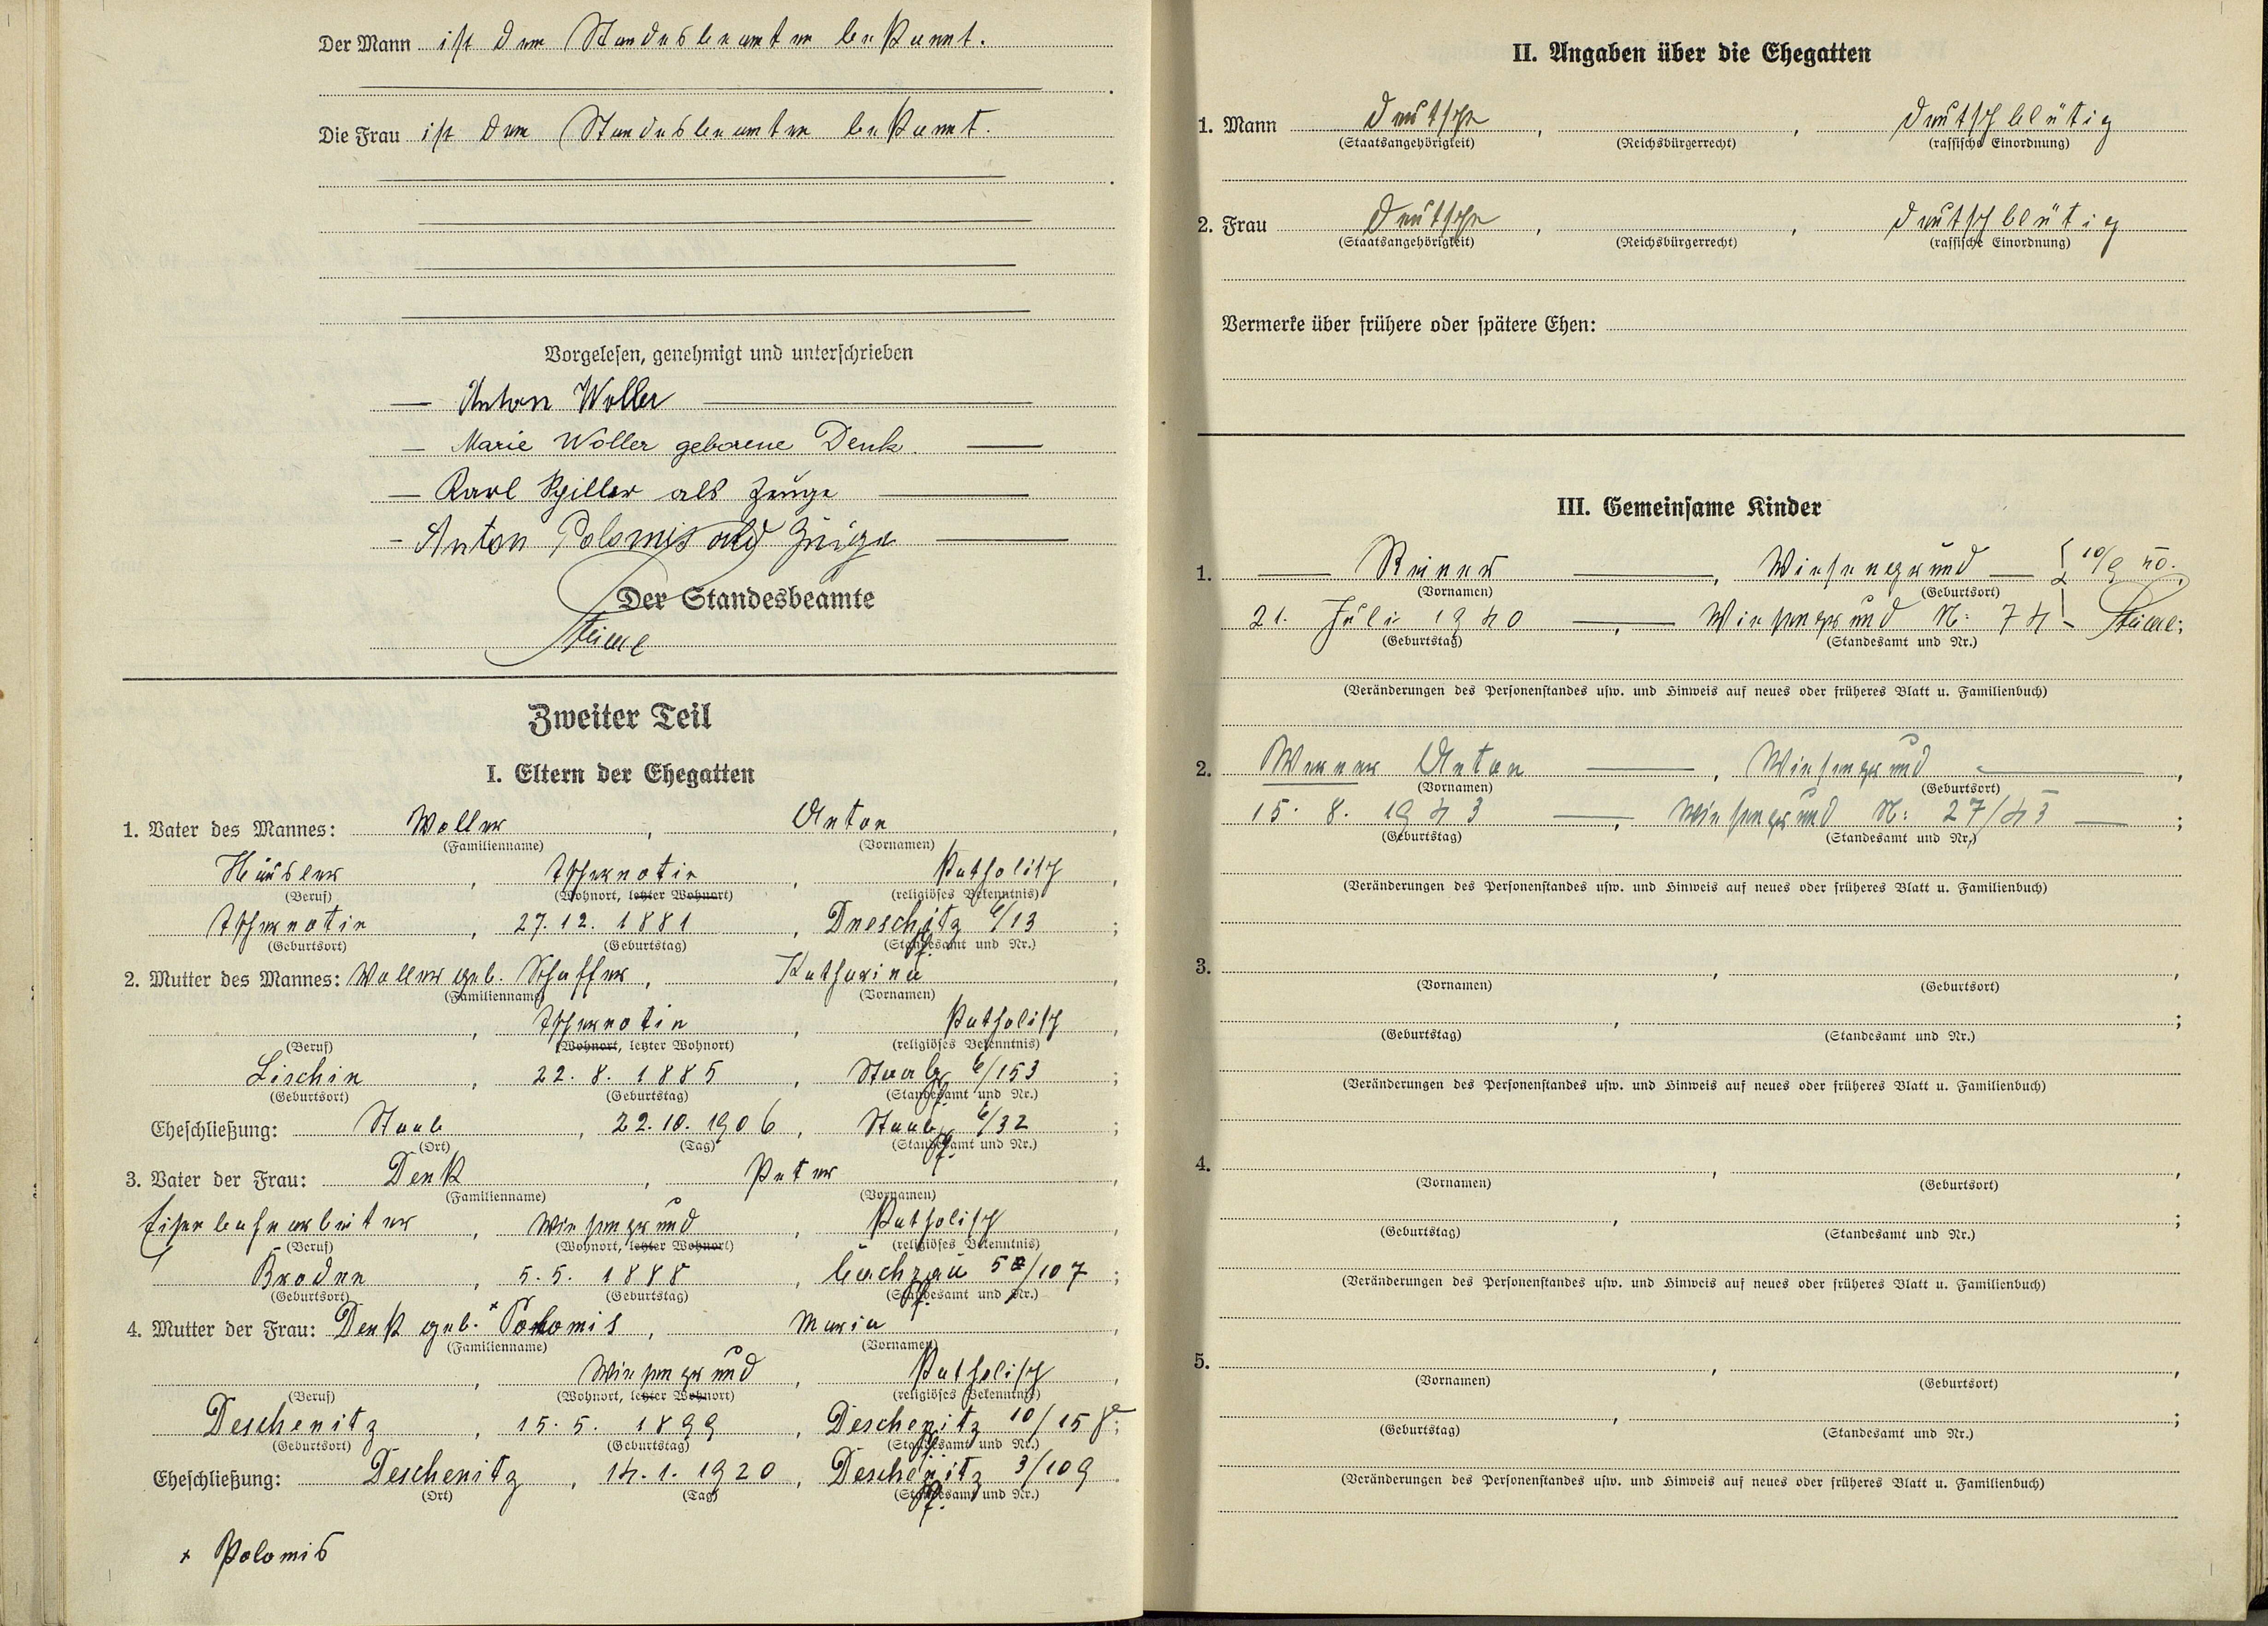 Der Mann ist dem Standesbeamten bekannt.
Die Frau ist dem Standesbeamten bekannt.
Vorgelesen, genehmigt und unterschrieben
— Anton Woller —
— Marie Woller geborene Denk. —
— Karl Spiller als Zeuge —
— Anton Polomis als Zeuge —
Der Standesbeamte
Zweiter Teil
I. Eltern der Ehegatten
1. Vater des Mannes: Woller, Anton,
(Familienname) (Vornamen)
Häusler, Tschernotin, katholisch,
(Beruf) (Wohnort, letzter Wohnort) (religiöses Bekenntnis)
Tschernotin, 27. 12. 1881, Dneschitz 6/13;
(Geburtsort) (Geburtstag) (Standesamt und Nr.)
2. Mutter des Mannes: Woller geb. Schaffer, Katharina,
(Familienname) (Vornamen)
, Tschernotin, katholisch,
(Beruf) (Wohnort, letzter Wohnort) (religiöses Bekenntnis)
Lischin, 22. 8. 1885, Staab 6/153;
(Geburtsort) (Geburtstag) (Standesamt und Nr.)
Eheschließung: Staab, 22. 10. 1906, Staab 6/32;
(Ort) (Tag) (Standesamt und Nr.)
3. Vater der Frau: Denk, Peter,
(Familienname) (Vornamen)
Eisenbahnarbeiter, Wiesengrund, katholisch,
(Beruf) (Wohnort, letzter Wohnort) (religiöses Bekenntnis)
Broden, 5. 5. 1888, /107;
(Geburtsort) (Geburtstag) (Standesamt und Nr.)
4. Mutter der Frau: Denk geb. + Polomis, Maria,
(Familienname) (Vornamen)
, Wiesengrund, katholisch,
(Beruf) (Wohnort, letzter Wohnort) (religiöses Bekenntnis)
Deschenitz, 15. 5. 1899, Deschenitz 10/158;
(Geburtsort) (Geburtstag) (Standesamt und Nr.)
Eheschließung: Deschenitz, 14. 1. 1920, Deschenitz 3/109.
(Ort) (Tag) (Standesamt und Nr.)
+ Polomis
II. Angaben über die Ehegatten
1. Mann deutsche, , deutschblütig
(Staatsangehörigkeit) (Reichsbürgerrecht) (rassische Einordnung)
2. Frau deutsche, , deutschblütig
(Staatsangehörigkeit) (Reichsbürgerrecht) (rassische Einordnung)
Vermerke über frühere oder spätere Ehen:
III. Gemeinsame Kinder
1. — Reiner —, Wiesengrund —
(Vornamen) (Geburtsort)
21. Juli 1940 —, — Wiesengrund N: 74 —
(Geburtstag) (Standesamt und Nr.)
(Veränderungen des Personenstandes usw. und Hinweis auf neues oder früheres Blatt u. Familienbuch)
2. Werner Anton —, Wiesengrund —,
(Vornamen) (Geburtsort)
15. 8. 1943 —, Wiesengrund N: 27/43 —;
(Geburtstag) (Standesamt und Nr.)
(Veränderungen des Personenstandes usw. und Hinweis auf neues oder früheres Blatt u. Familienbuch)
3. , ,
(Vornamen) (Geburtsort)
, ;
(Geburtstag) (Standesamt und Nr.)
(Veränderungen des Personenstandes usw. und Hinweis auf neues oder früheres Blatt u. Familienbuch)
4. , ,
(Vornamen) (Geburtsort)
, ;
(Geburtstag) (Standesamt und Nr.)
(Veränderungen des Personenstandes usw. und Hinweis auf neues oder früheres Blatt u. Familienbuch)
5. , ,
(Vornamen) (Geburtsort)
, ;
(Geburtstag) (Standesamt und Nr.)
(Veränderungen des Personenstandes usw. und Hinweis auf neues oder früheres Blatt u. Familienbuch)